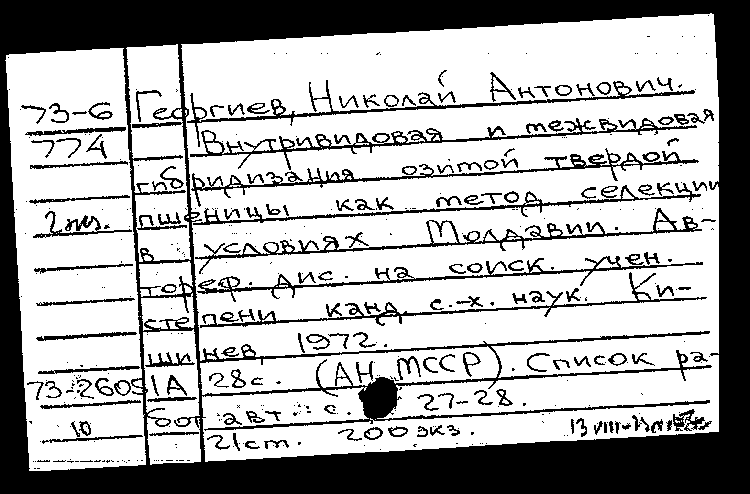 73-6 Георгиев, Николай Антонович.
774 Внутривидовая и межвидовая
гибридизация озимой твердой
2 экз. пшеницы как метод селекции
в условиях Молдавии. Ав-
тореф. дис. на соиск. учен.
степени канд. с.-х. наук. Ки-
шинев, 1972.
73-26051А 28с. (АН МССР). Список ра-
10 бот авт.: с. 27-28.
21ст. 200 экз. 13 VIII-73